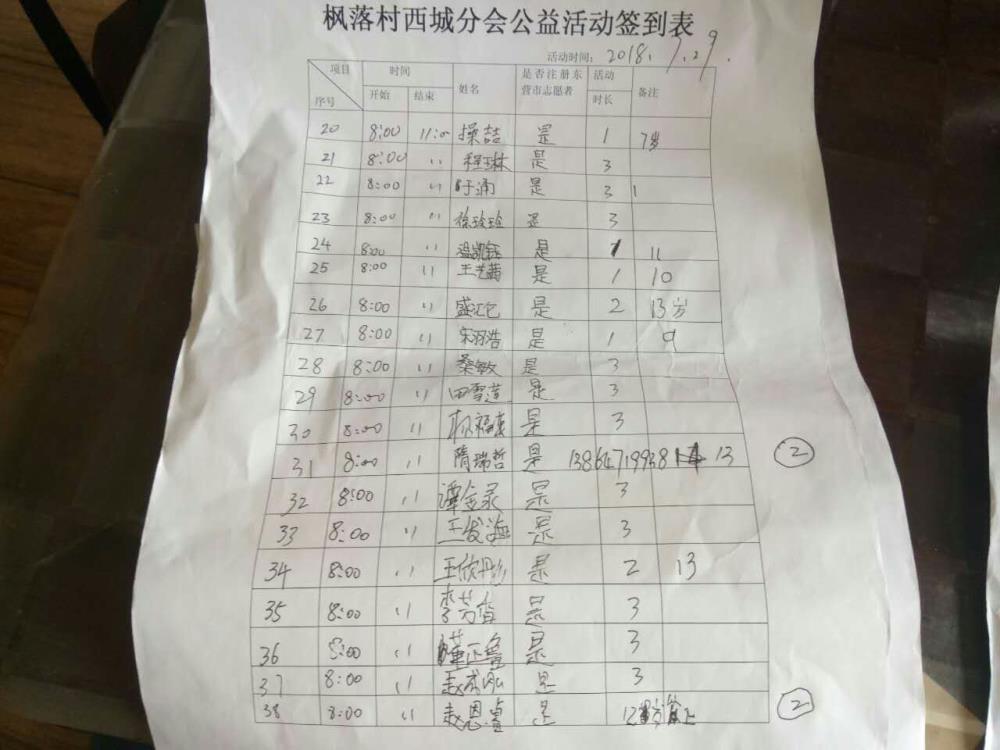 枫落村西城分会公益活动签到表
活动时间: 2018.7.29.
项目 时间 姓名 是否注册东营市志愿者 活动时长 备注
序号 开始 结束
20 8:00 11:00 操喆 是 1 7岁
21 8:00 〃 程琳 是 3
22 8:00 〃 于涌 是 3 1
23 8:00 〃 徐玲玲 是 3
24 8:00 〃 是 1 11
25 8:00 〃 王艺茜 是 1 10
26 8:00 〃 盛汇 是 2 13岁
27 8:00 〃 宋羽浩 是 1 9
28 8:00 〃 桑敏 是 3
29 8:00 〃 田雪莲 是 3
30 8:00 〃 是 3
31 8:00 〃 隋瑞哲 是 13864719938 13 ②
32 8:00 〃 谭金录 是 3
33 8:00 〃 王俊海 是 3
34 8:00 〃 王欣彤 是 2 13
35 8:00 〃 李芳 是 3
36 8:00 〃 董正鲁 是 3
37 8:00 〃 赵 是 3
38 8:00 〃 赵恩 是 12岁 ②